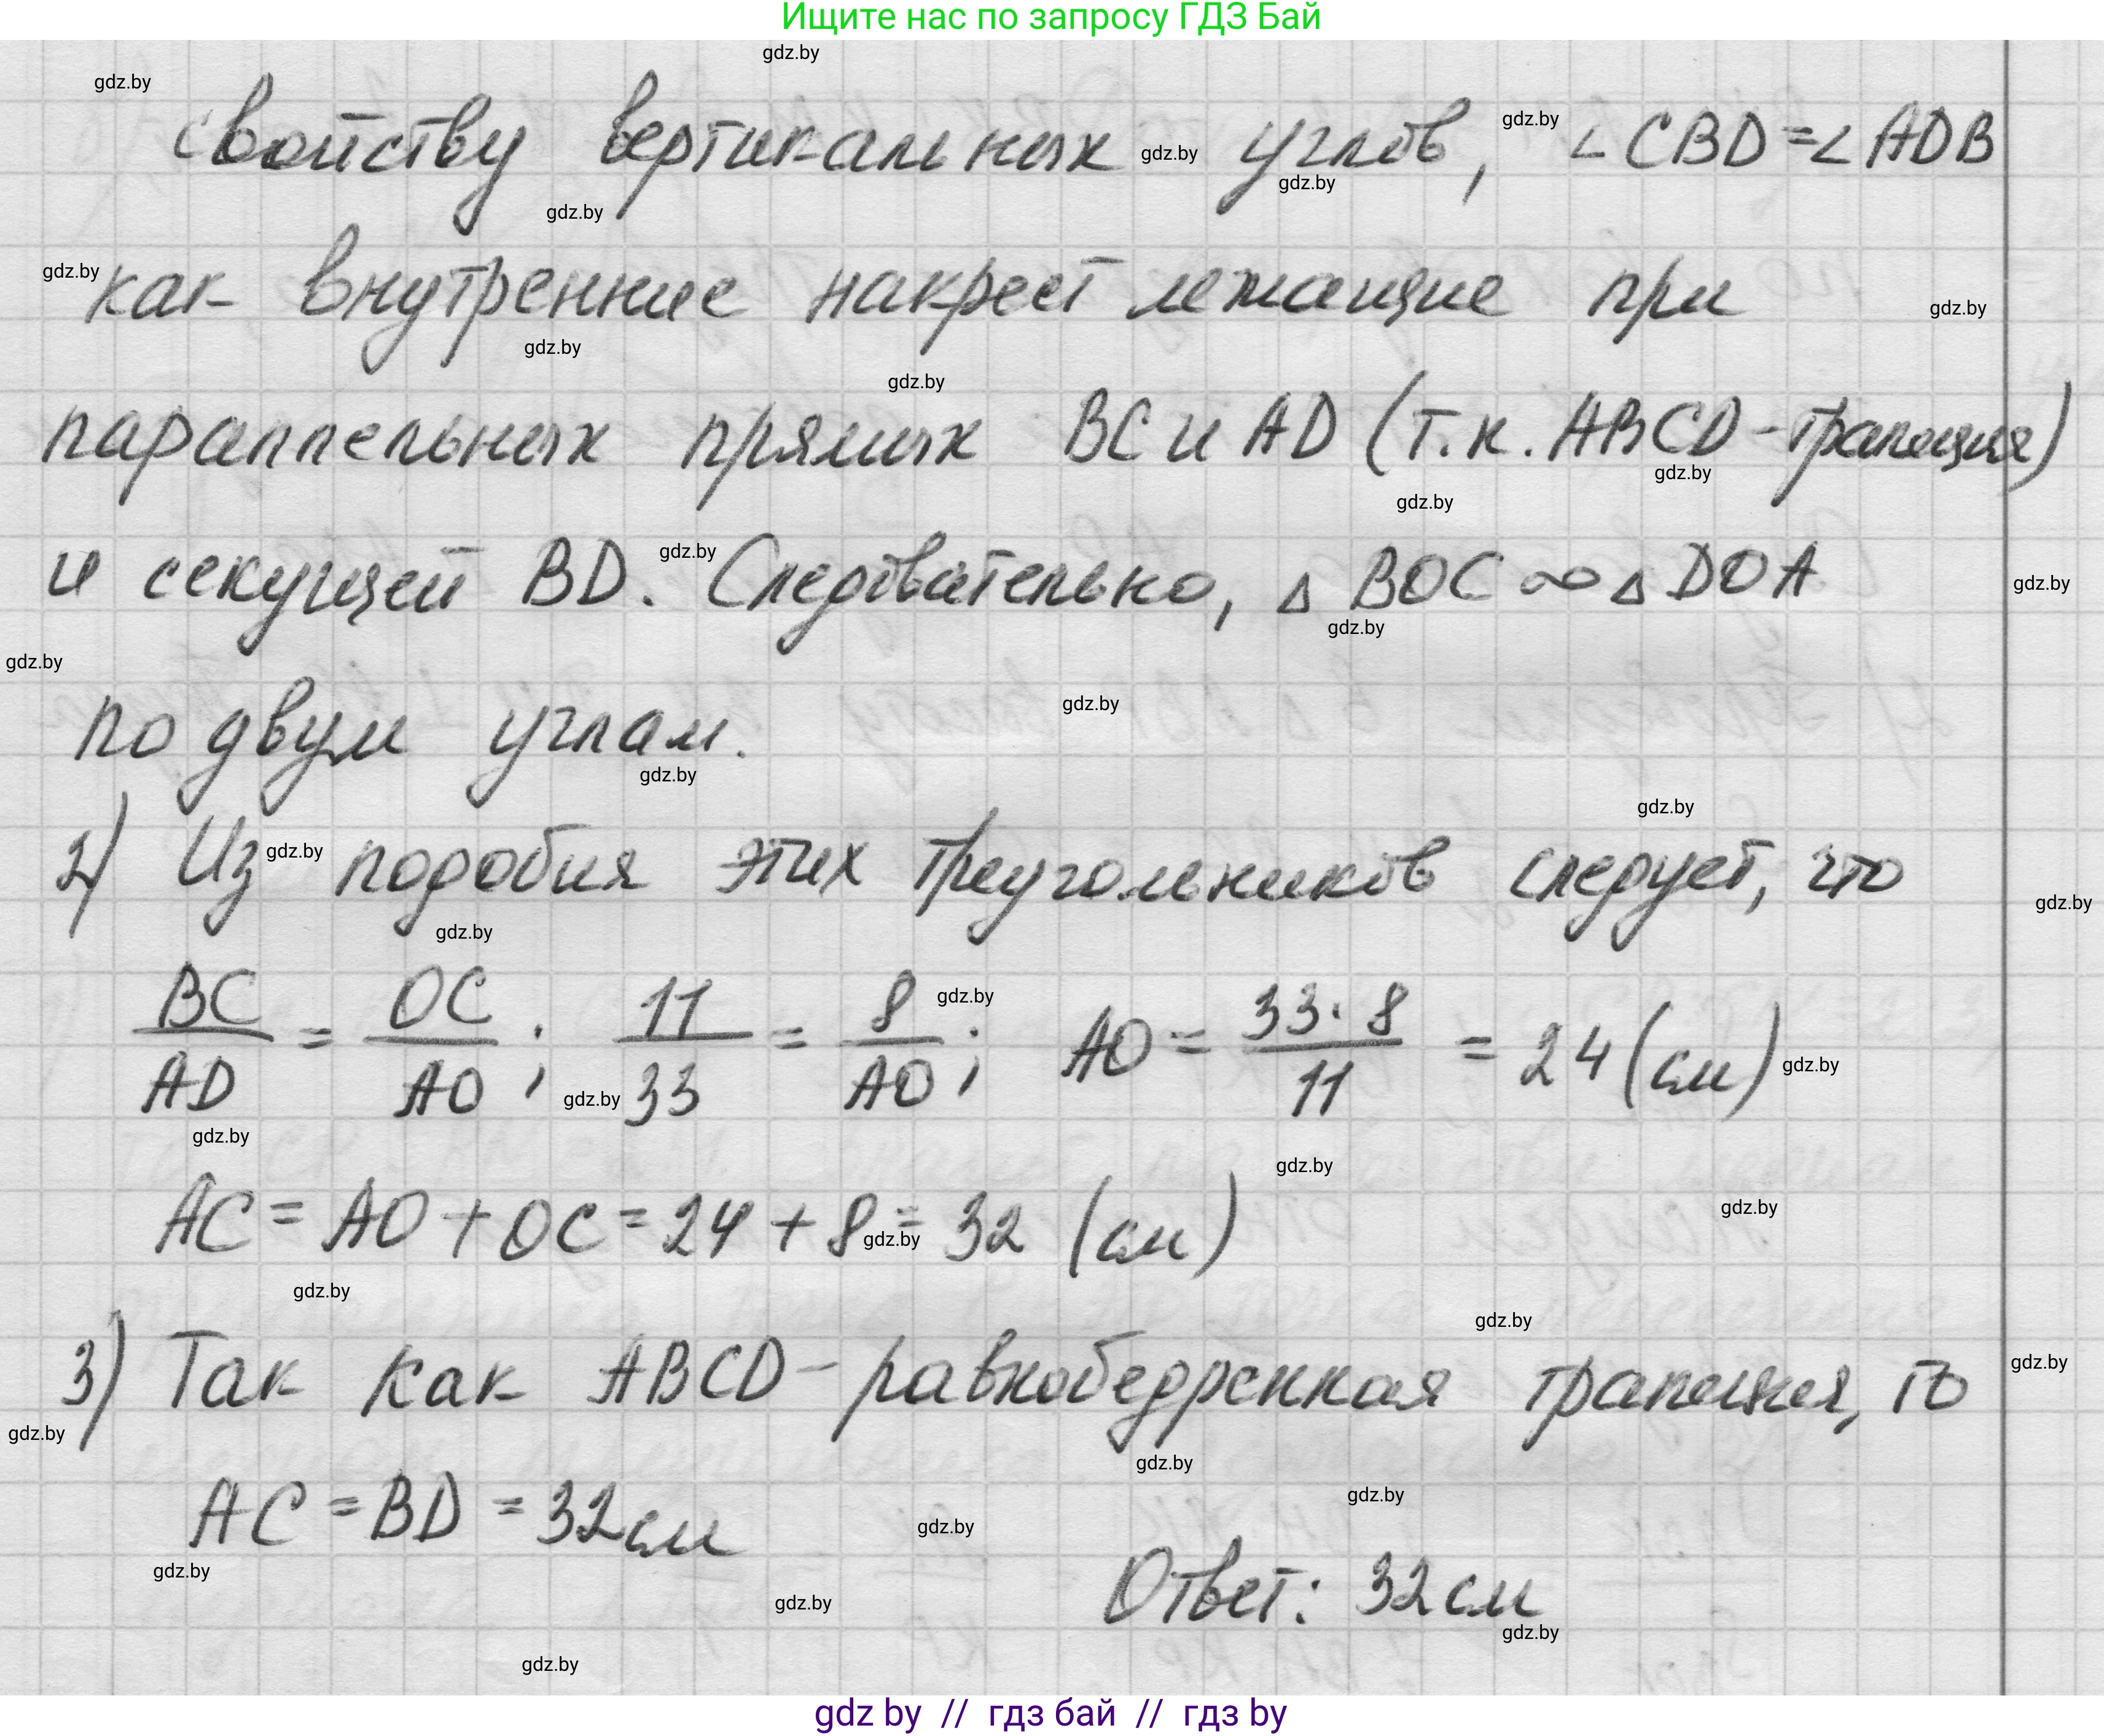 Ищите нас по запросу ГДЗ Бай
свойству вертикальных углов, ∠CBD=∠ADB
как внутренние накрест лежащие при
параллельных прямых BC и AD (т.к. ABCD-трапеция)
и секущей BD. Следовательно, △BOC ∞ △DOA
по двум углам.
2) Из подобия этих треугольников следует, что
BC/AD = OC/AO; 11/33 = 8/AO; AO = 33·8/11 = 24 (см)
AC = AO + OC = 24 + 8 = 32 (см)
3) Так как ABCD - равнобедренная трапеция, то
AC = BD = 32 см
Ответ: 32 см
gdz by // гдз бай // гдз by